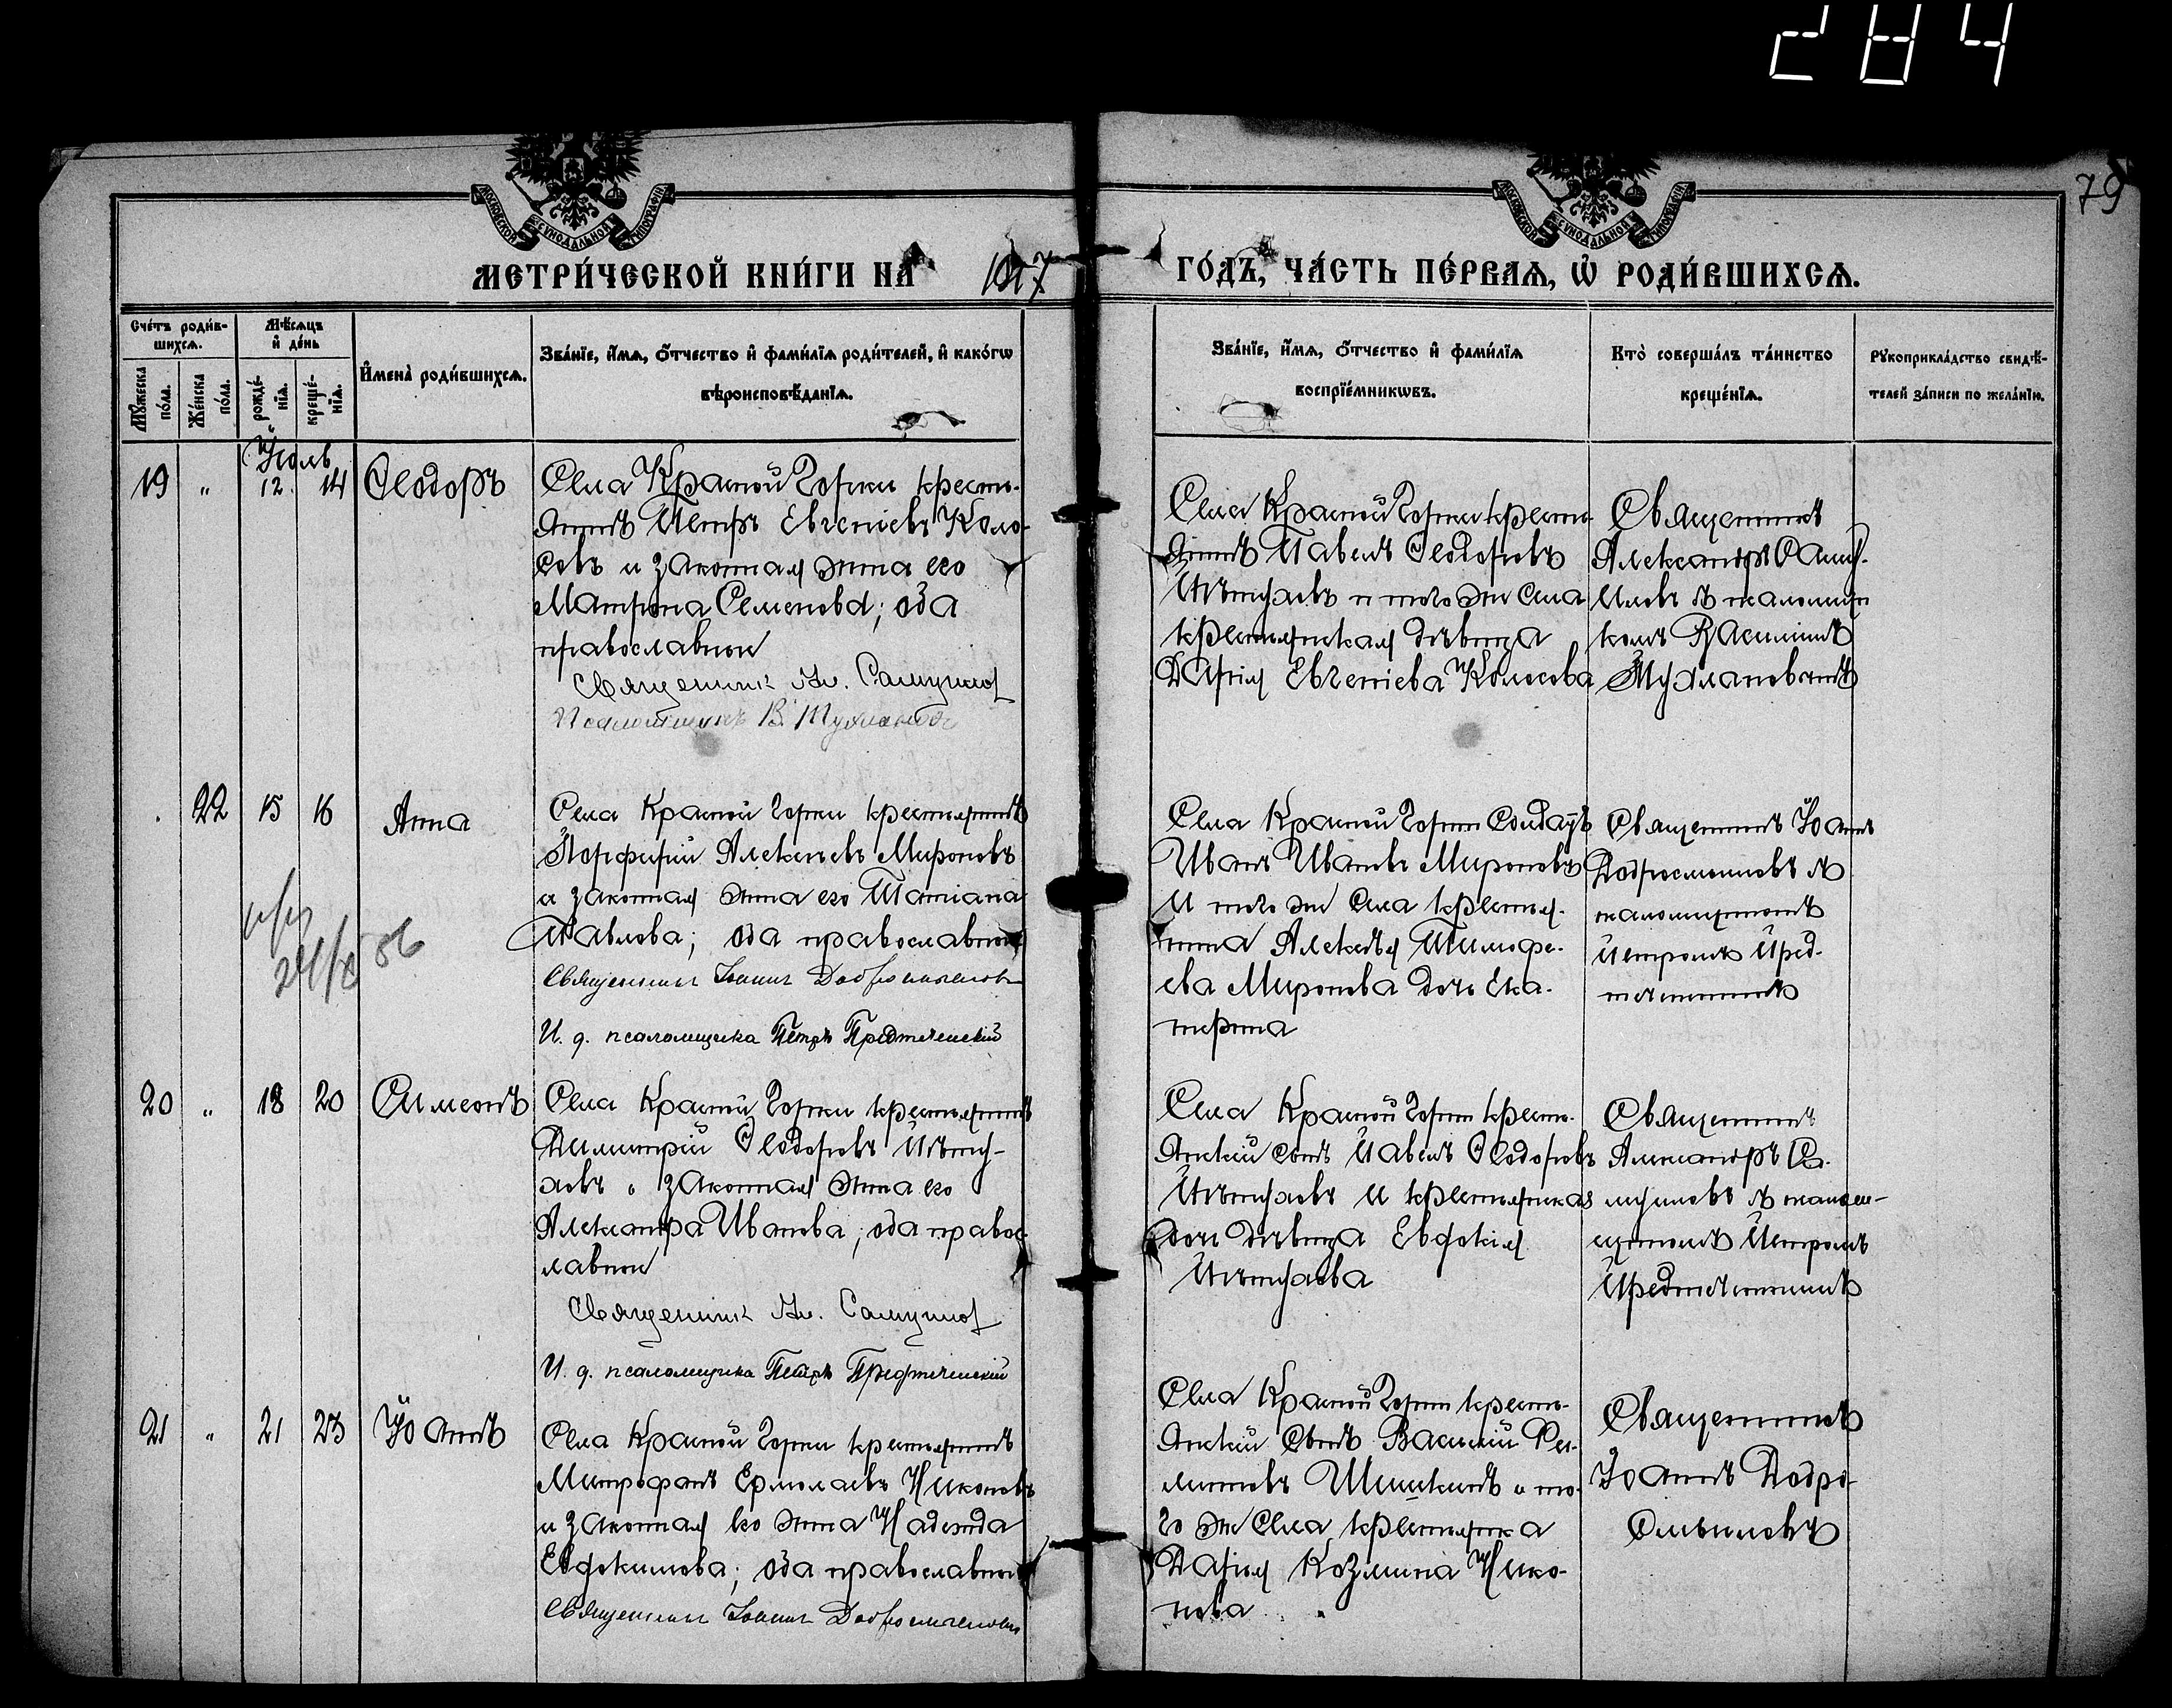 284
79
МОСКОВСКОЙ СѴНОДАЛЬНОЙ ТИПОГРАФІИ
МОСКОВСКОЙ СѴНОДАЛЬНОЙ ТИПОГРАФІИ
МЕТРИ́ЧЕСКОЙ КНИ́ГИ НА 1917 ГО́ДЪ, ЧА́СТЬ ПЕ́РВАѦ, Ѡ҆ РОДИ́ВШИХСѦ.
Сче́тъ роди́вшихсѧ.
Мѣ́сѧцъ и҆ де́нь
Мꙋ́жеска по́ла.
Же́нска по́ла.
рожде́нїѧ.
креще́нїѧ.
И҆мена̀ роди́вшихсѧ.
Зва́нїе, и҆́мѧ, ѻ҆́тчество и҆ фами́лїѧ роди́телей, и҆ како́гѡ
вѣроисповѣ́данїѧ.
Зва́нїе, и҆́мѧ, ѻ҆́тчество и҆ фами́лїѧ
воспрїе́мникѡвъ.
Кто̀ соверша́лъ та́инство
креще́нїѧ.
Рꙋкоприкла́дство свидѣ́-
телей за́писи по жела́нїю.
Іюль
19 " 12 14 Ѳеодоръ
Села Красной Горки кресть-
янинъ Петръ Евгеніевъ Коло-
совъ и законная жена его
Матрона Семенова; оба
православные
Священникъ Ал. Самуиловъ
Псаломщикъ В. Тухлановъ
Села Красной Горки кресть-
янинъ Павелъ Ѳеодоровъ
Пѣтуховъ и того же села
крестьянская дѣвица
Дарія Евгеніева Колосова
Священникъ
Александръ Саму-
иловъ съ псаломщи
комъ Василіемъ
22 15 16 Анна
Села Красной Горки крестьянинъ
Порфирій Алексѣевъ Мироновъ
и законная жена его Татіана
Павлова; оба православные
Священникъ Іоаннъ Добросмысловъ
И. д. псаломщика Петръ Предтеченскій
Села Красной Горки солдатъ
Иванъ Ивановъ Мироновъ
и того же села крестья-
нина Алексѣя Тимофе-
ева Миронова дочь Ека-
терина
Священникъ Іоаннъ
Добросмысловъ съ
псаломщикомъ
Петромъ Пред-
теченскимъ
20 " 18 20 Симеонъ
Села Красной Горки крестьянинъ
Димитрій Ѳеодоровъ Пѣту-
ховъ и законная жена его
Александра Иванова; оба правос-
лавные
Священникъ Ал. Самуиловъ
И. д. псаломщика Петръ Предтеченскій
Села Красной Горки кресть-
янскій сынъ Павелъ Ѳеодоровъ
Пѣтуховъ и крестьянская
дочь дѣвица Евдокія
Пѣтухова
Священникъ
Александръ Са-
муиловъ съ псалом-
щикомъ Петромъ
Предтеченскимъ
21 " 21 23 Іоаннъ
Села Красной Горки крестьянинъ
Митрофанъ Ермолаевъ Никоновъ
и законная его жена Надежда
Евдокимова; оба православные
Священникъ Іоаннъ Добросмысловъ
Села Красной Горки кресть-
янскій сынъ Василій
Шишкинъ и то-
го же села крестьянка
Дарія Козмина Нико-
нова
Священникъ
Іоаннъ Добро-
смысловъ